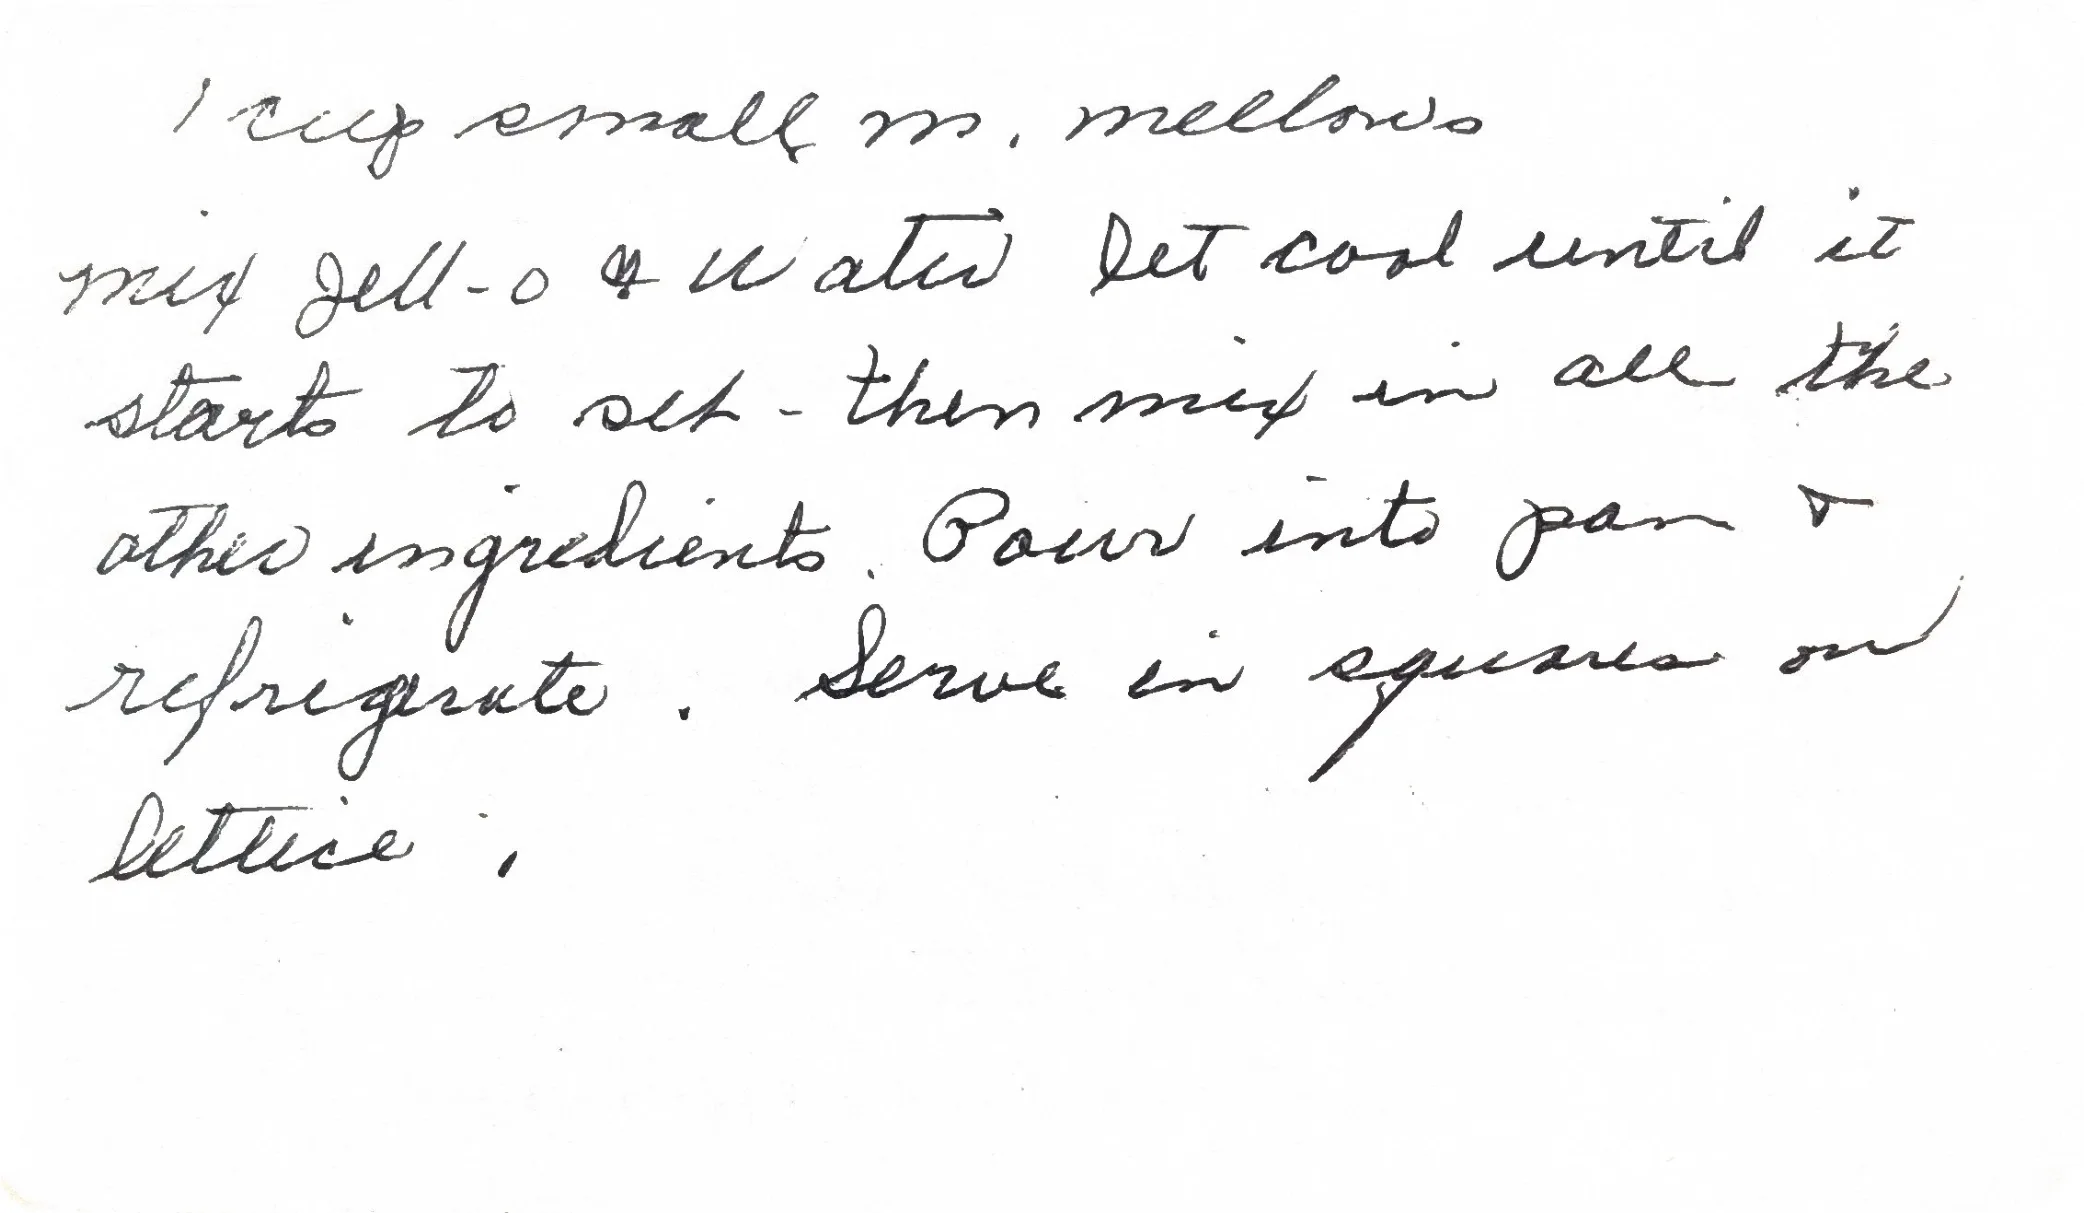 1 cup small m. mellows
mix Jell-o & Water let cool until it
starts to set - then mix in all the
other ingredients. Pour into pan &
refrigerate. Serve in squares on
lettice.